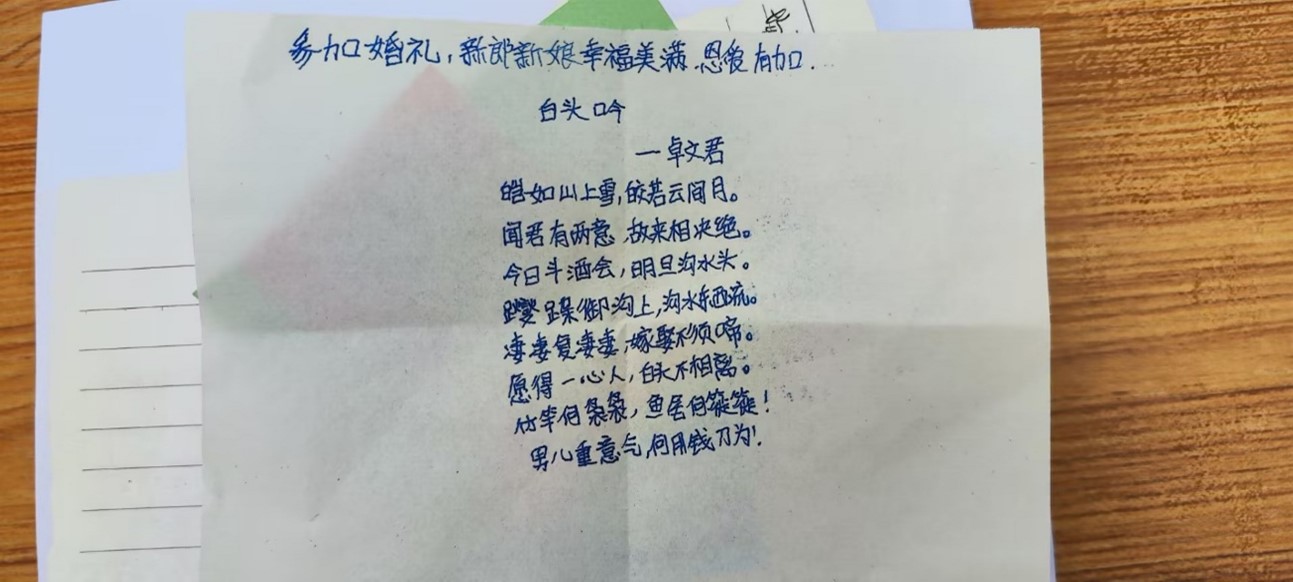 参加婚礼,新郎新娘幸福美满 恩爱有加.
白头吟
—卓文君
皑如山上雪,皎若云间月。
闻君有两意,故来相决绝。
今日斗酒会,明旦沟水头。
躞蹀御沟上,沟水东西流。
凄凄复凄凄,嫁娶不须啼。
愿得一心人,白头不相离。
竹竿何袅袅,鱼尾何簁簁!
男儿重意气,何用钱刀为!